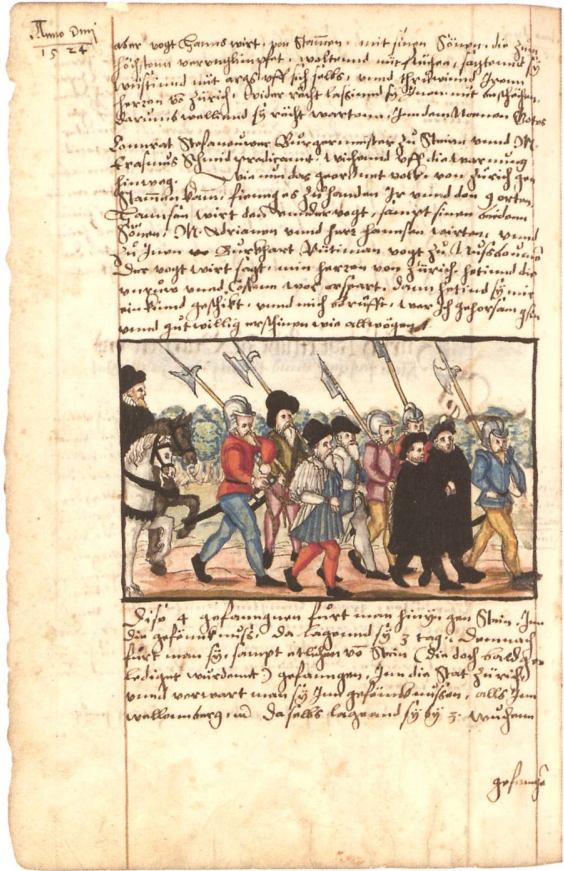 Anno Dnj
1524
aber vogt Hanns wirt, von Stamen, mit sinen Sönen, die zum
höchsten verunglimpfet, woltend nüt fliehen, sagtend sy
wüstind nüt args uff sich selbs, vnnd thrüwind Iren
herren vo Zürich, wider rächt lassind sy Inen nüt beschehen,
Darumb wellend sy rächt warten, Inn dem Namen Gotes
Connrat Burgermeister zu Stein vnnd M.
Erasmus Schmid predicant, wichend vff die warnung
hinweg. Wie nun das geordnet volk, von Zürich gen
Stamen kam, fieng es zehanden Ir vnnd den 9 orten,
Hannsen wirt den vndervogt, sampt sinen beiden
Sönen, M. Adrianen vnd herr Hannsen wirten, vnnd
zu Inen vo Burkhart Rütiman vogt zu Nussboumen
Der vogt wirt sagt, min herren von Zürich hetind die
vnruw vnnd Costen wol erspart, dann hetind sy mir
ein kind geschikt, vnnd mich brüfft, wer Ich gehorsam gsin
vnnd gutwillig erschinen wie allwegen
Dise 4 gefanngnen fürt man hinyn gen Stein, Inn
die gefenknuss, da lagend sy 3 tag, Demnach
fürt man sy, sampt etlichen vo Stein (die doch bald
lediget wurdennt) gefanngen, Inn die Stat Zürich,
vnnd verwart man sy Inn gefenknussen, alls Inn
wellennberg, Daselbs lagend sy by 3. wuchenn
gefanngē